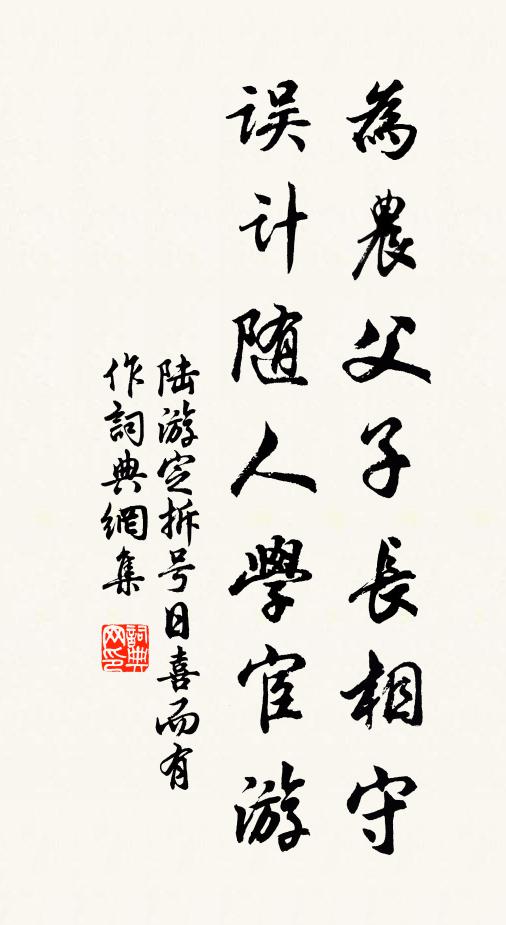 為農父子長相守
误计随人學宦游
陆游定拆号日喜而有
作詞典網集
詞典网印